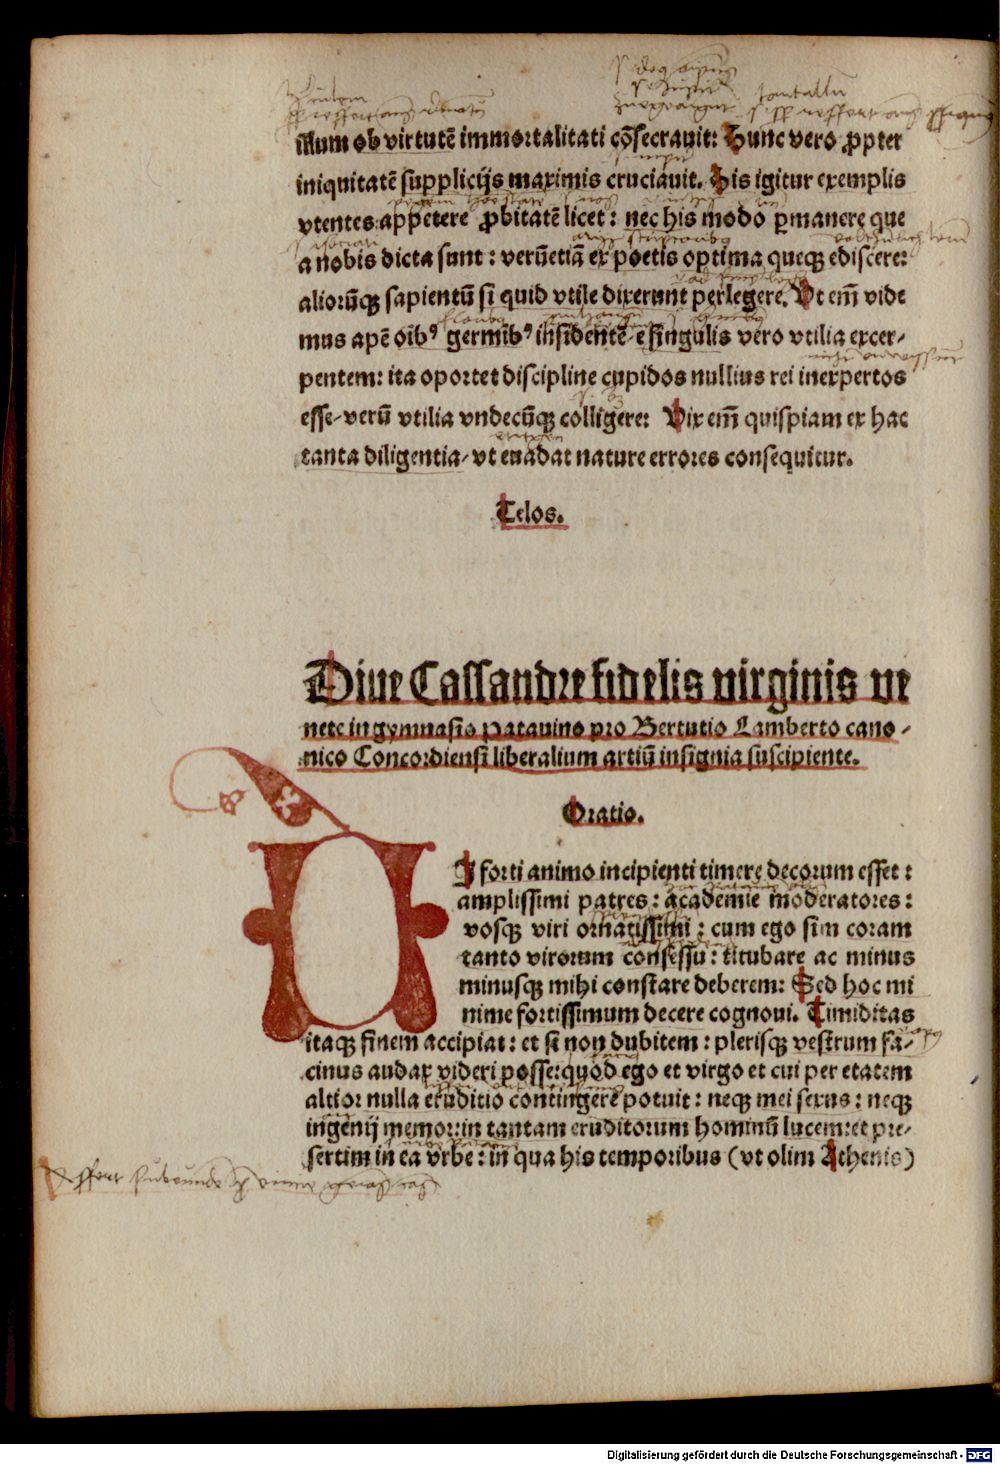 illum ob virtutē immortalitati cōsecrauit: Hunc vero ꝓpter
iniquitatē supplicijs maximis cruciauit. His igitur exemplis
vtentes appetere ꝓbitatē licet: nec his modo ꝑmanere que
a nobis dicta sunt: verūetiā ex poetis optima queqꝫ ediscere:
aliorūqꝫ sapientū si quid vtile dixerunt perlegere. Vt em̄ vide
mus apē oīb⁹ germīb⁹ insidentē e singulis vero vtilia excer-
pentem: ita oportet discipline cupidos nullius rei inexpertos
esse-verū vtilia vndecūqꝫ colligere: Vix em̄ quispiam ex hac
tanta diligentia-vt euadat nature errores consequitur.
Telos.
Diue Cassandre fidelis virginis ve
nete in gymnasio patauino pro Bertutio Lamberto cano-
nico Concordiensi liberalium artiū insignia suscipiente.
Oratio.
UJ forti animo incipienti timere decorum esset:
amplissimi patres: academie moderatores:
vosqꝫ viri ornatissimi: cum ego sim coram
tanto virorum consessu: titubare ac minus
minusqꝫ mihi constare deberem: Sed hoc mi
nime fortissimum decere cognoui. Timiditas
itaqꝫ finem accipiat: et si non dubitem: plerisqꝫ vestrum fa-
cinus audax videri posse: quod ego et virgo et cui per etatem
altior nulla eruditio contingere potuit: neqꝫ mei sexus: neqꝫ
ingenij memor: in tantam eruditorum hominū lucem: et pre-
sertim in ea vrbe: in qua his temporibus (vt olim Athenis)
Digitalisierung gefördert durch die Deutsche Forschungsgemeinschaft - DFG